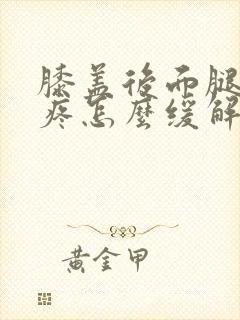 膝盖後面腿
疼怎麼缓解
黄金甲